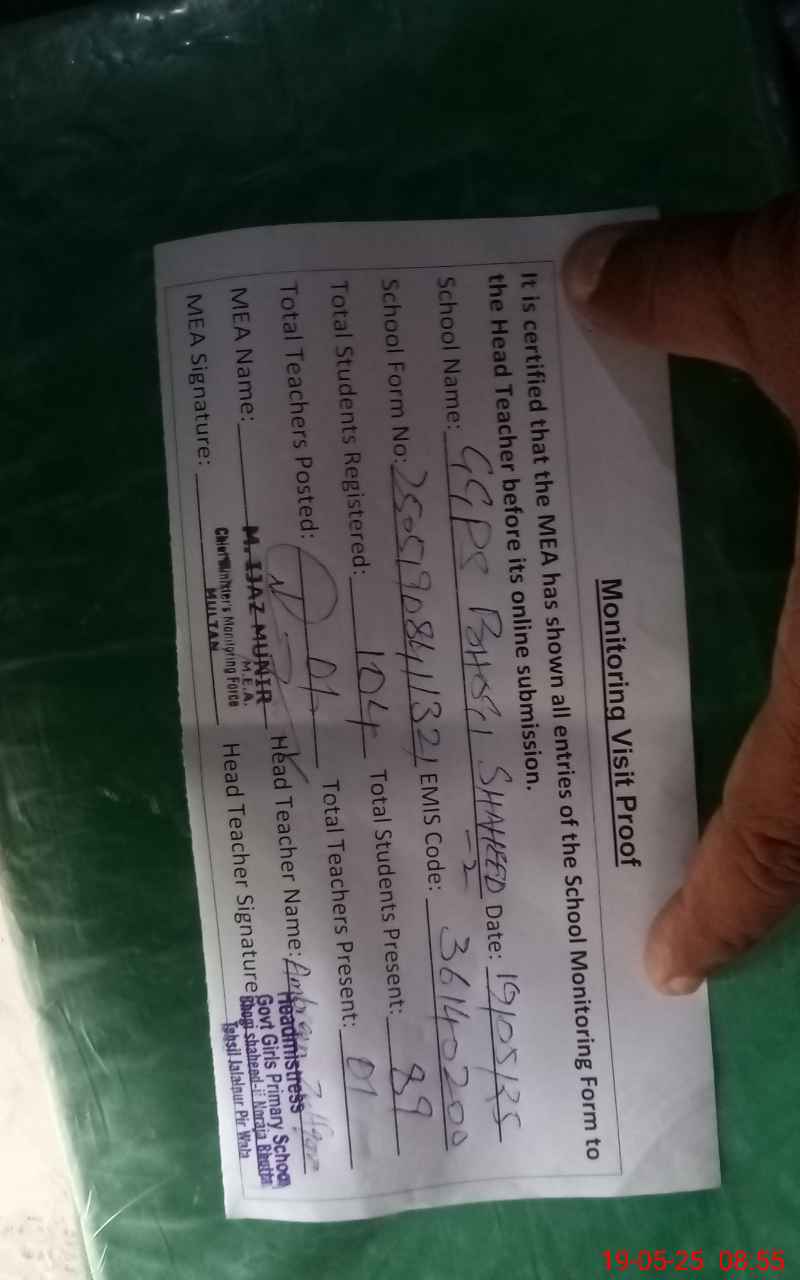 Monitoring Visit Proof
It is certified that the MEA has shown all entries of the School Monitoring Form to
the Head Teacher before its online submission.
School Name: GGPS BHOGI SHAHEED -2 Date: 19/05/25
School Form No: 25051908411321 EMIS Code: 36140200
Total Students Registered: 104 Total Students Present: 89
Total Teachers Posted: 01 Total Teachers Present: 01
MEA Name: M. IJAZ MUNIR Head Teacher Name:
M.E.A.
MEA Signature: Head Teacher Signature
Chief Minister's Monitoring Force
MULTAN
Headmistress
Govt Girls Primary School
Bhogi shaheed-ii Noraja Bhutta
Tehsil Jalalpur Pir Wala
19-05-25 08:55